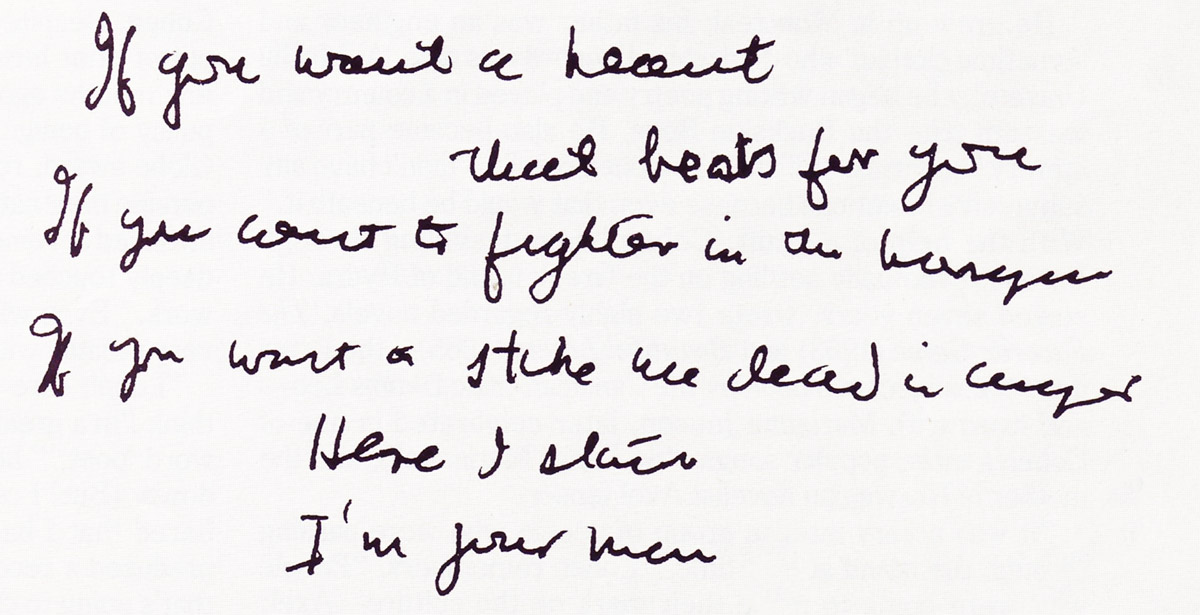 If you want a heart
that beats for you
If you want to fighter in the
If you want a strike me dead in anger
Here I stand
I'm your man